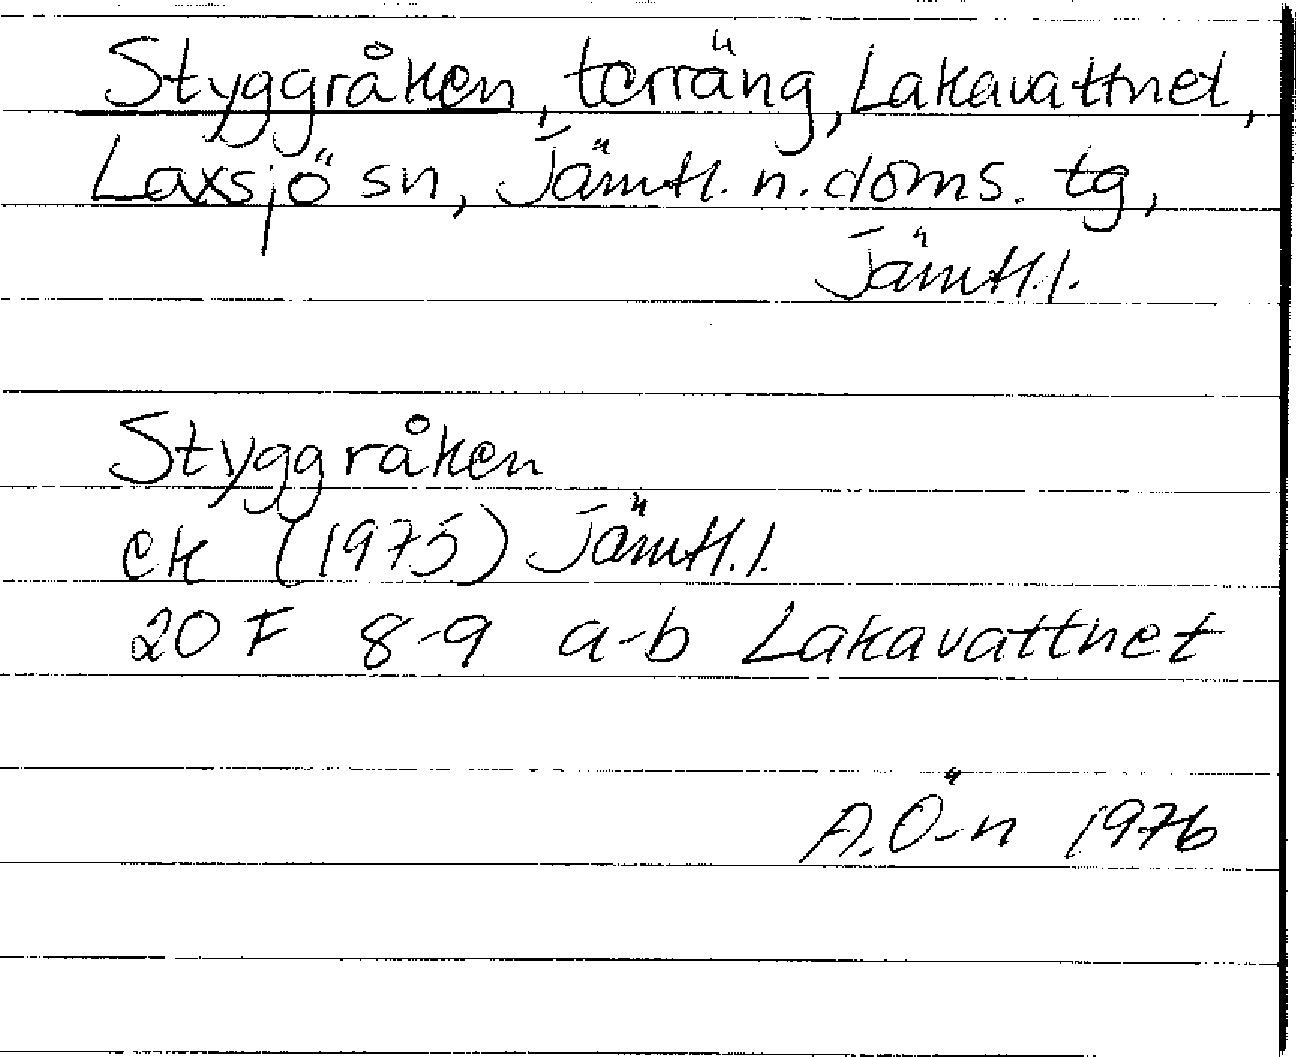 Styggråken, terräng, Lakavattnet,
Laxsjö sn, Jämtl. n. doms. tg,
Jämtl. l.
Styggråken
ek (1975) Jämtl. l.
20 F 8-9 a-b Lakavattnet
A. Ö-n 1976